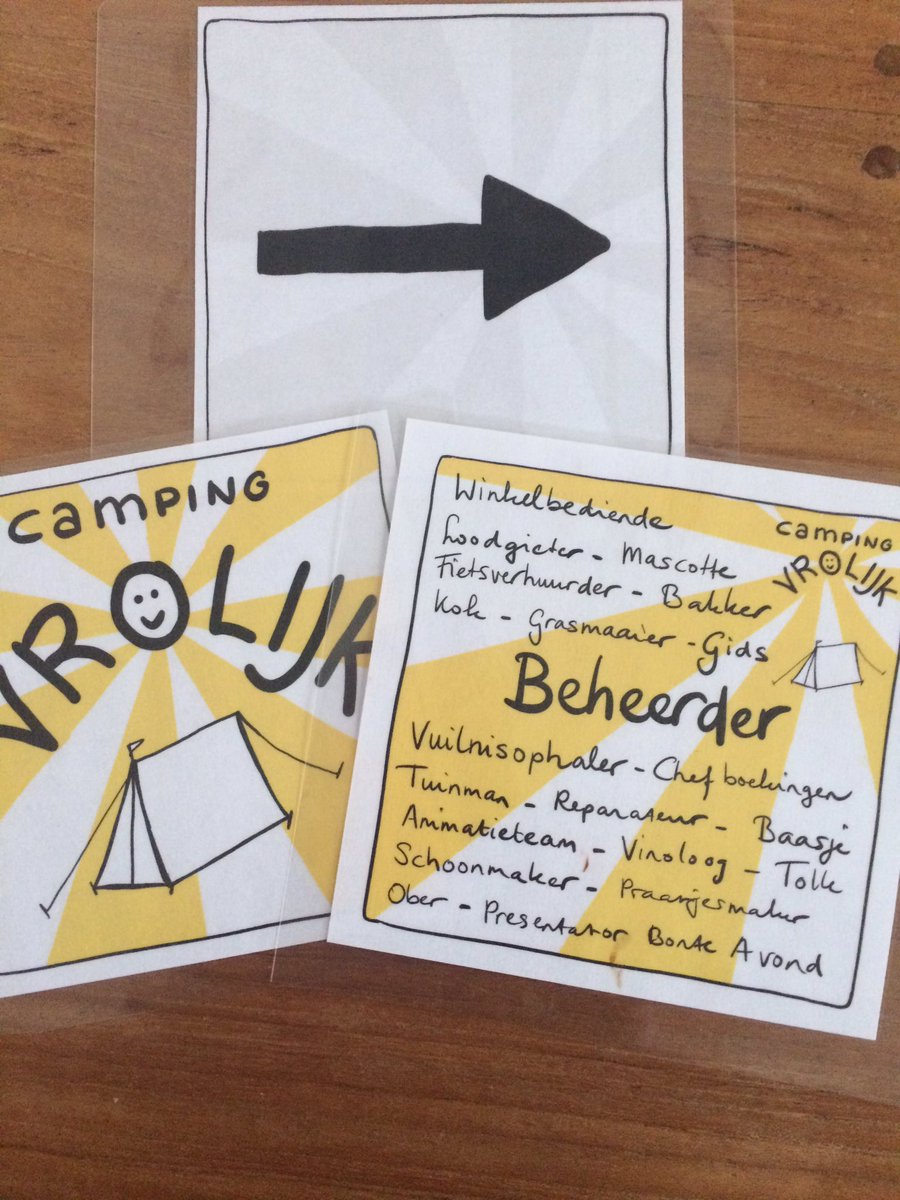 camping
VROLIJK
Winkelbediende
Loodgieter - Mascotte
Fietsverhuurder - Bakker
Kok - Grasmaaier - Gids
Beheerder
Vuilnisophaler - Chef boekingen
Tuinman - Reparateur - Baasje
Animatieteam - Vinoloog - Tolk
Schoonmaker - Praatjesmaker
Ober - Presentator Bonte Avond
camping
VROLIJK